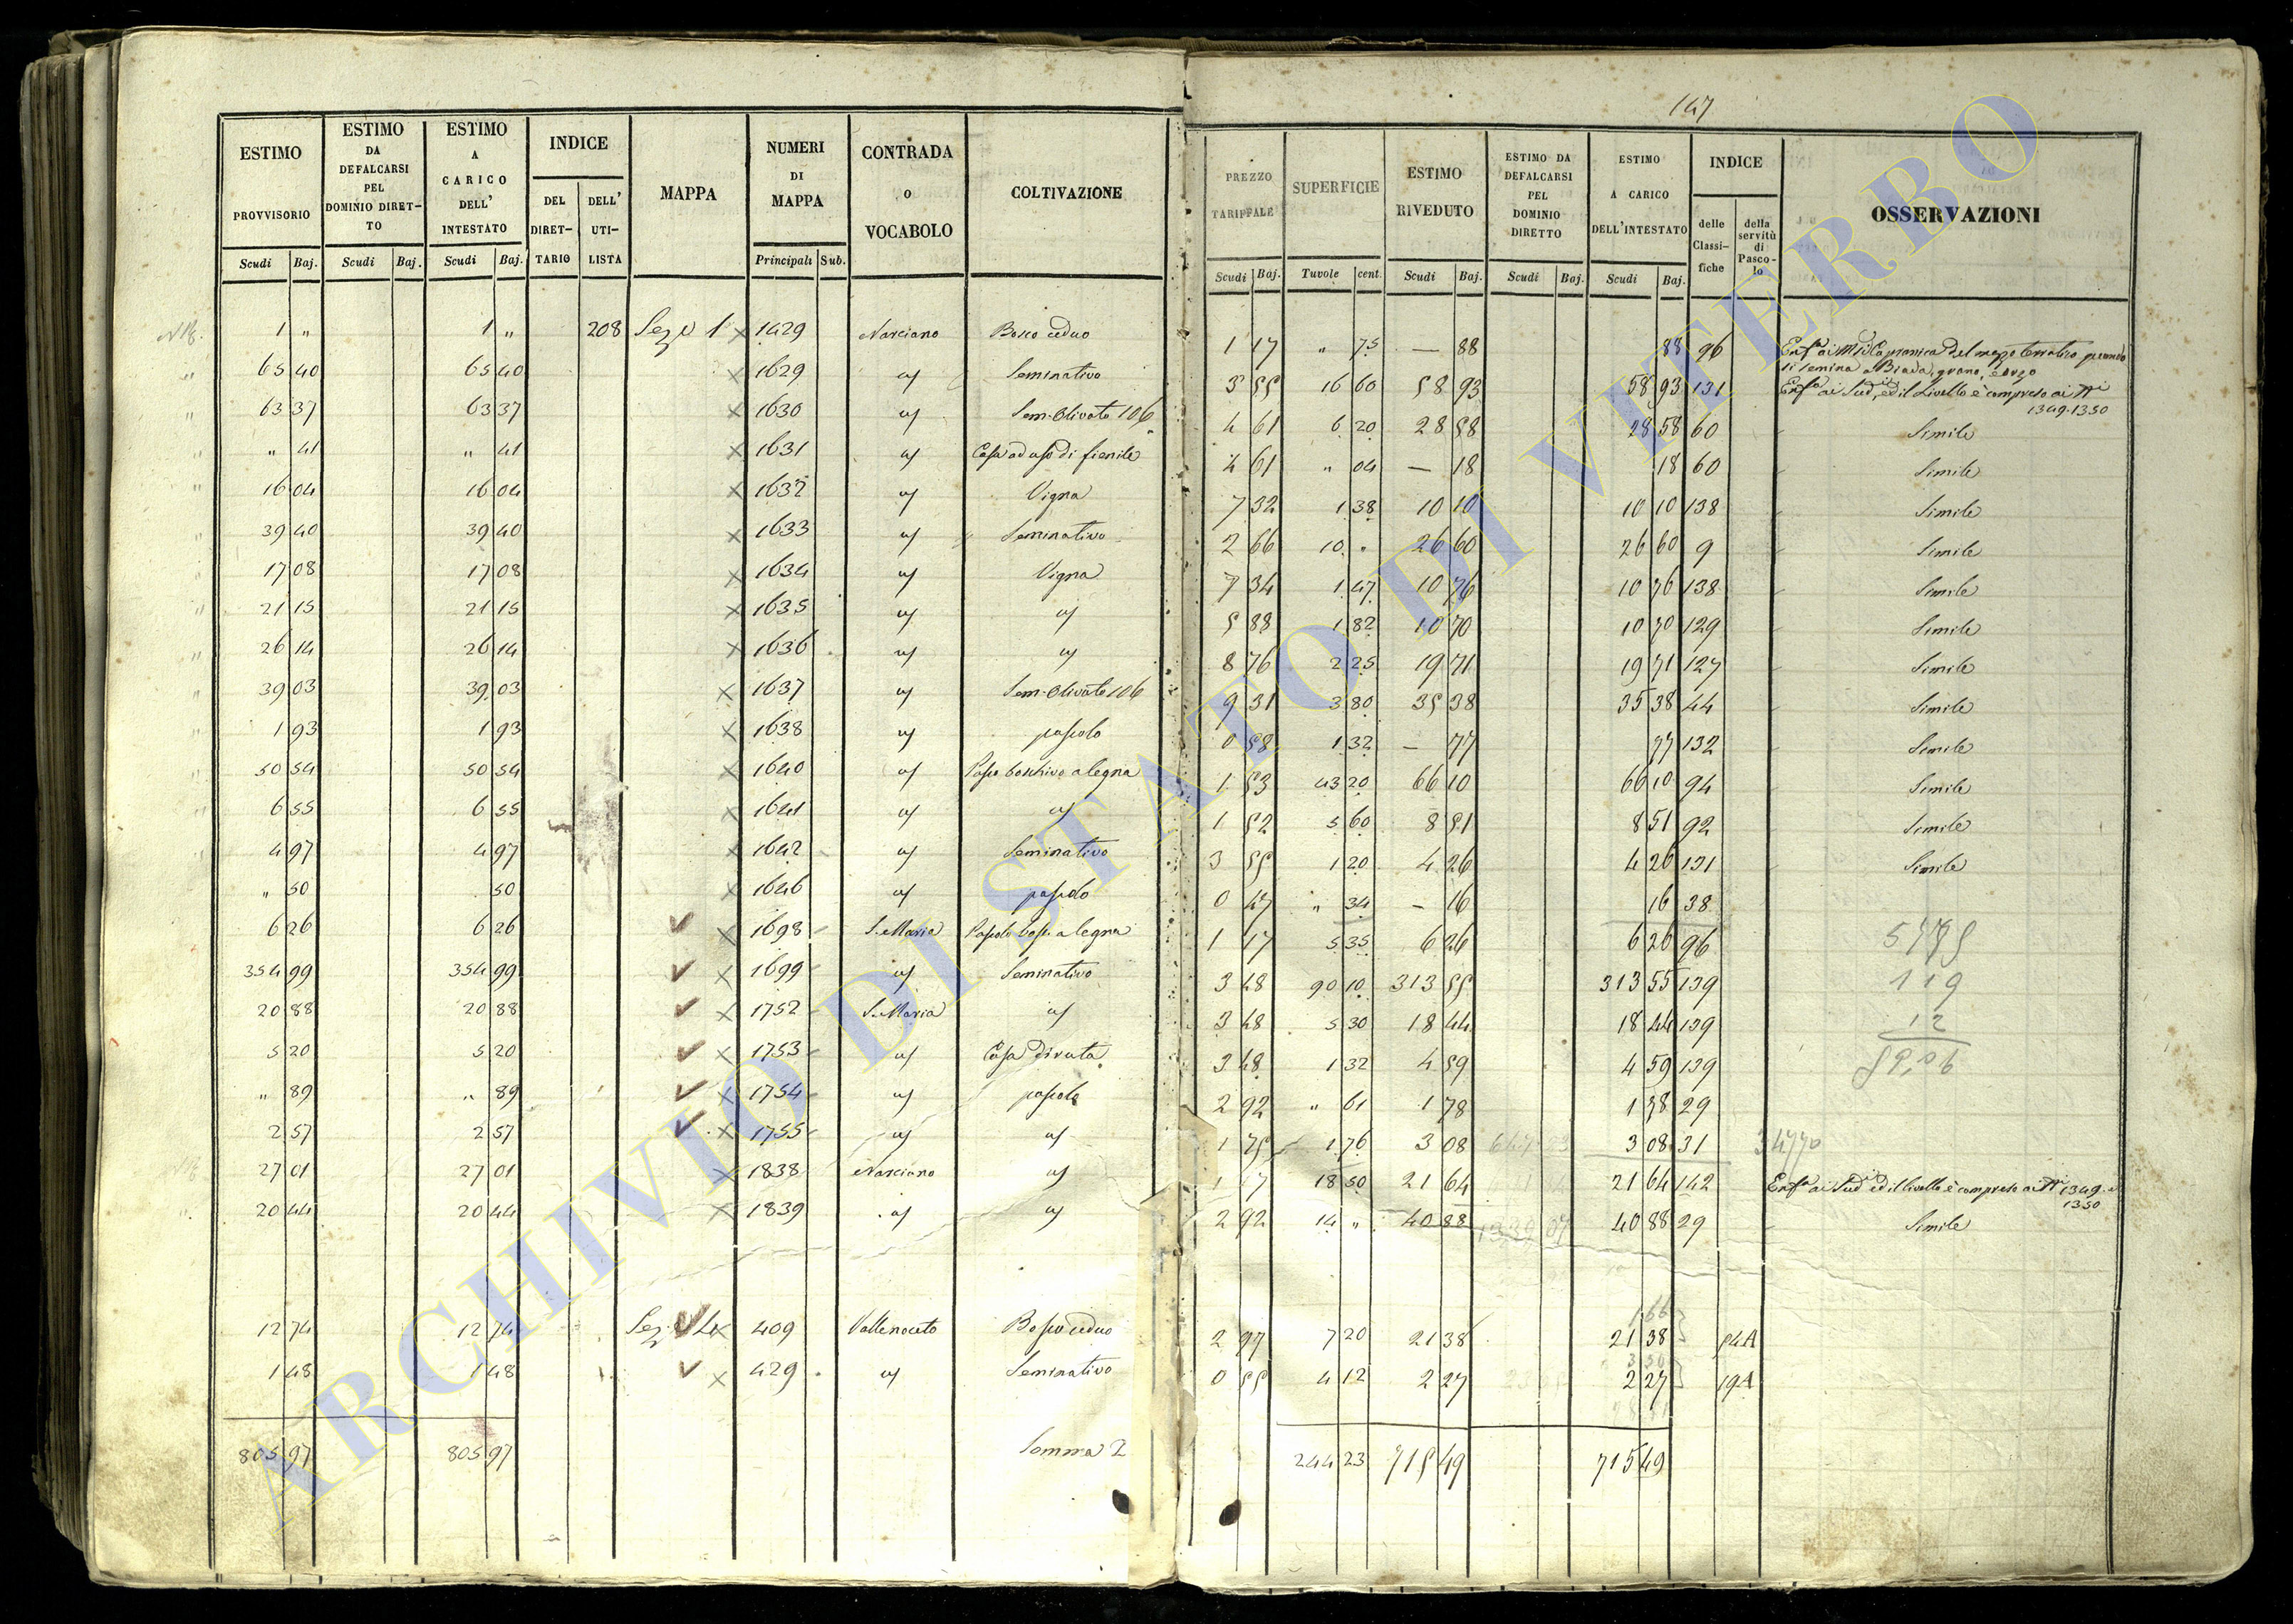 147
ESTIMO PROVVISORIO Scudi Baj. | ESTIMO DA DEFALCARSI PEL DOMINIO DIRET-TO Scudi Baj. | ESTIMO A CARICO DELL' INTESTATO Scudi Baj. | INDICE DEL DIRET-TARIO | DELL' UTI-LISTA | MAPPA | NUMERI DI MAPPA Principali Sub. | CONTRADA O VOCABOLO | COLTIVAZIONE | PREZZO TARIFFALE Scudi Baj. | SUPERFICIE Tuvole cent. | ESTIMO RIVEDUTO Scudi Baj. | ESTIMO DA DEFALCARSI PEL DOMINIO DIRETTO Scudi Baj. | ESTIMO A CARICO DELL'INTESTATO Scudi Baj. | INDICE delle Classi-fiche | della servitù di Pasco-lo | OSSERVAZIONI
1 " 1 " 208 Sez. 1 × 1429 Narciano Bosco ceduo 1 17 " 75 — 88 88 96 del mezzo terratico quando
si semina a Biada, grano, e orzo
65 40 65 40 × 1629 Seminativo 3 55 16 60 58 93 58 93 131 ed il Livello è compreso ai Ni
1349. 1350
63 37 63 37 × 1630 Sem. Olivato 106 4 61 6 20 28 58 28 58 60 Simile
" 41 " 41 × 1631 Casa ad uso di fienile 4 61 " 04 — 18 18 60 Simile
16 04 16 04 × 1632 Vigna 7 32 1 38 10 10 10 10 138 Simile
39 40 39 40 × 1633 Seminativo 2 66 10 " 26 60 26 60 9 Simile
17 08 17 08 × 1634 Vigna 7 34 1 47 10 76 10 76 138 Simile
21 15 21 15 × 1635 5 88 1 82 10 70 10 70 129 Simile
26 14 26 14 × 1636 8 76 2 25 19 71 19 71 127 Simile
39 03 39 03 × 1637 Sem. Olivato 106 9 31 3 80 35 38 35 38 44 Simile
1 93 1 93 × 1638 pascolo 0 58 1 32 — 77 77 132 Simile
50 54 50 54 × 1640 Pasco boschivo a legna 1 53 43 20 66 10 66 10 94 Simile
6 55 6 55 × 1641 1 52 5 60 8 51 8 51 92 Simile
4 97 4 97 × 1642 Seminativo 3 55 1 20 4 26 4 26 131 Simile
" 50 50 × 1646 pascolo 0 47 " 34 — 16 16 38
6 26 6 26 × 1698 S. Maria Pascolo bosc. a legna 1 17 5 35 6 26 6 26 96
354 99 354 99 × 1699 Seminativo 3 48 90 10 313 55 313 55 139 119
20 88 20 88 × 1752 S. Maria 3 48 5 30 18 44 18 44 139 12
5 20 5 20 × 1753 Casa diruta 3 48 1 32 4 59 4 59 139
" 89 " 89 × 1754 pascolo 2 92 " 61 1 78 1 78 29
2 57 2 57 × 1755 1 75 1 76 3 08 3 08 31
27 01 27 01 × 1838 Narciano 1 17 18 50 21 64 21 64 142 ed il livello è compreso ai Ni 1349. e
1350
20 44 20 44 × 1839 2 92 14 " 40 88 40 88 29 Simile
12 74 12 74 Sez. × 409 Vallenoceto Bosco ceduo 2 97 7 20 21 38 21 38 54A
1 48 1 48 × 429 Seminativo 0 55 4 12 2 27 2 27 19A
805 97 805 97 Somma 244 23 715 49 715 49
ARCHIVIO DI STATO DI VITERBO